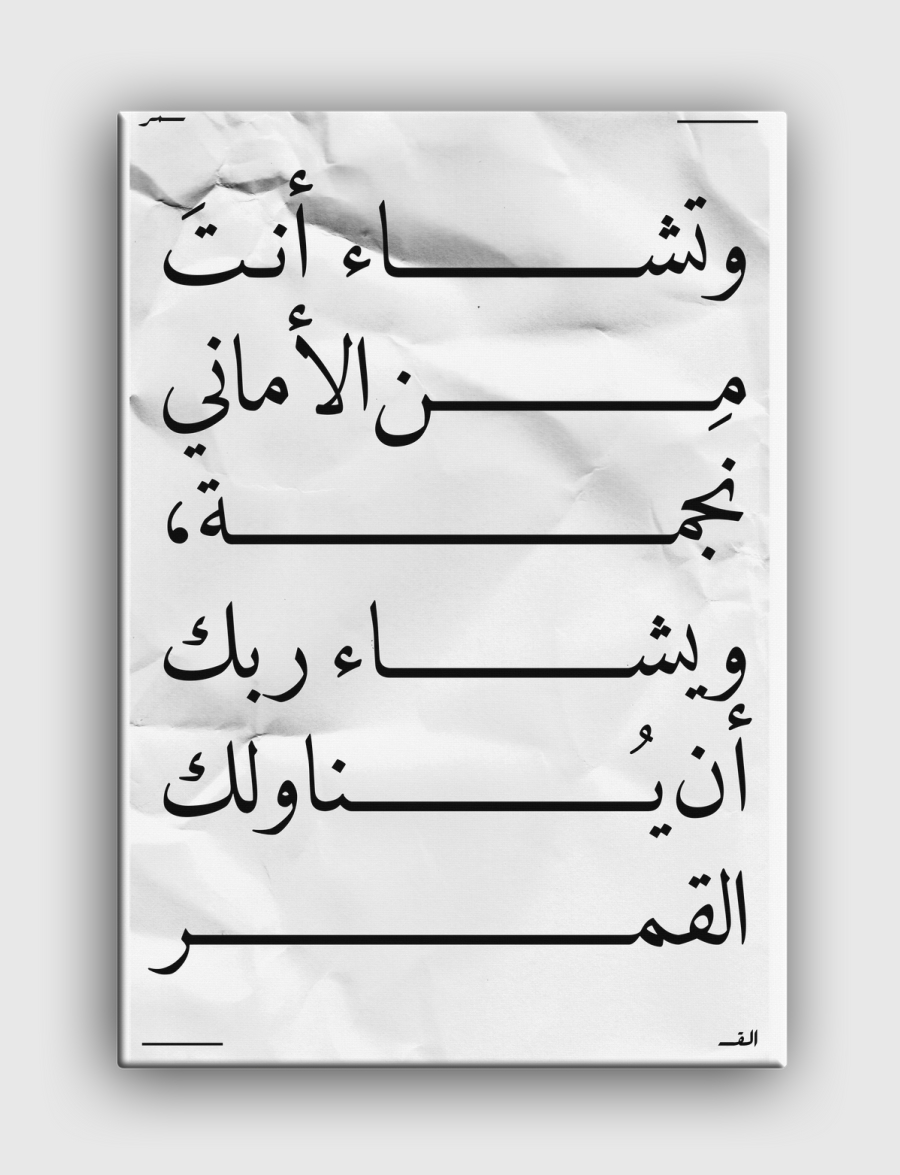 ـمر
وتشـــــــاء أنتَ
مِـــــــن الأماني
نجمـــــــة،
ويشـــــــاء ربك
أن يُـــــــناولك
القمـــــــر
القـ